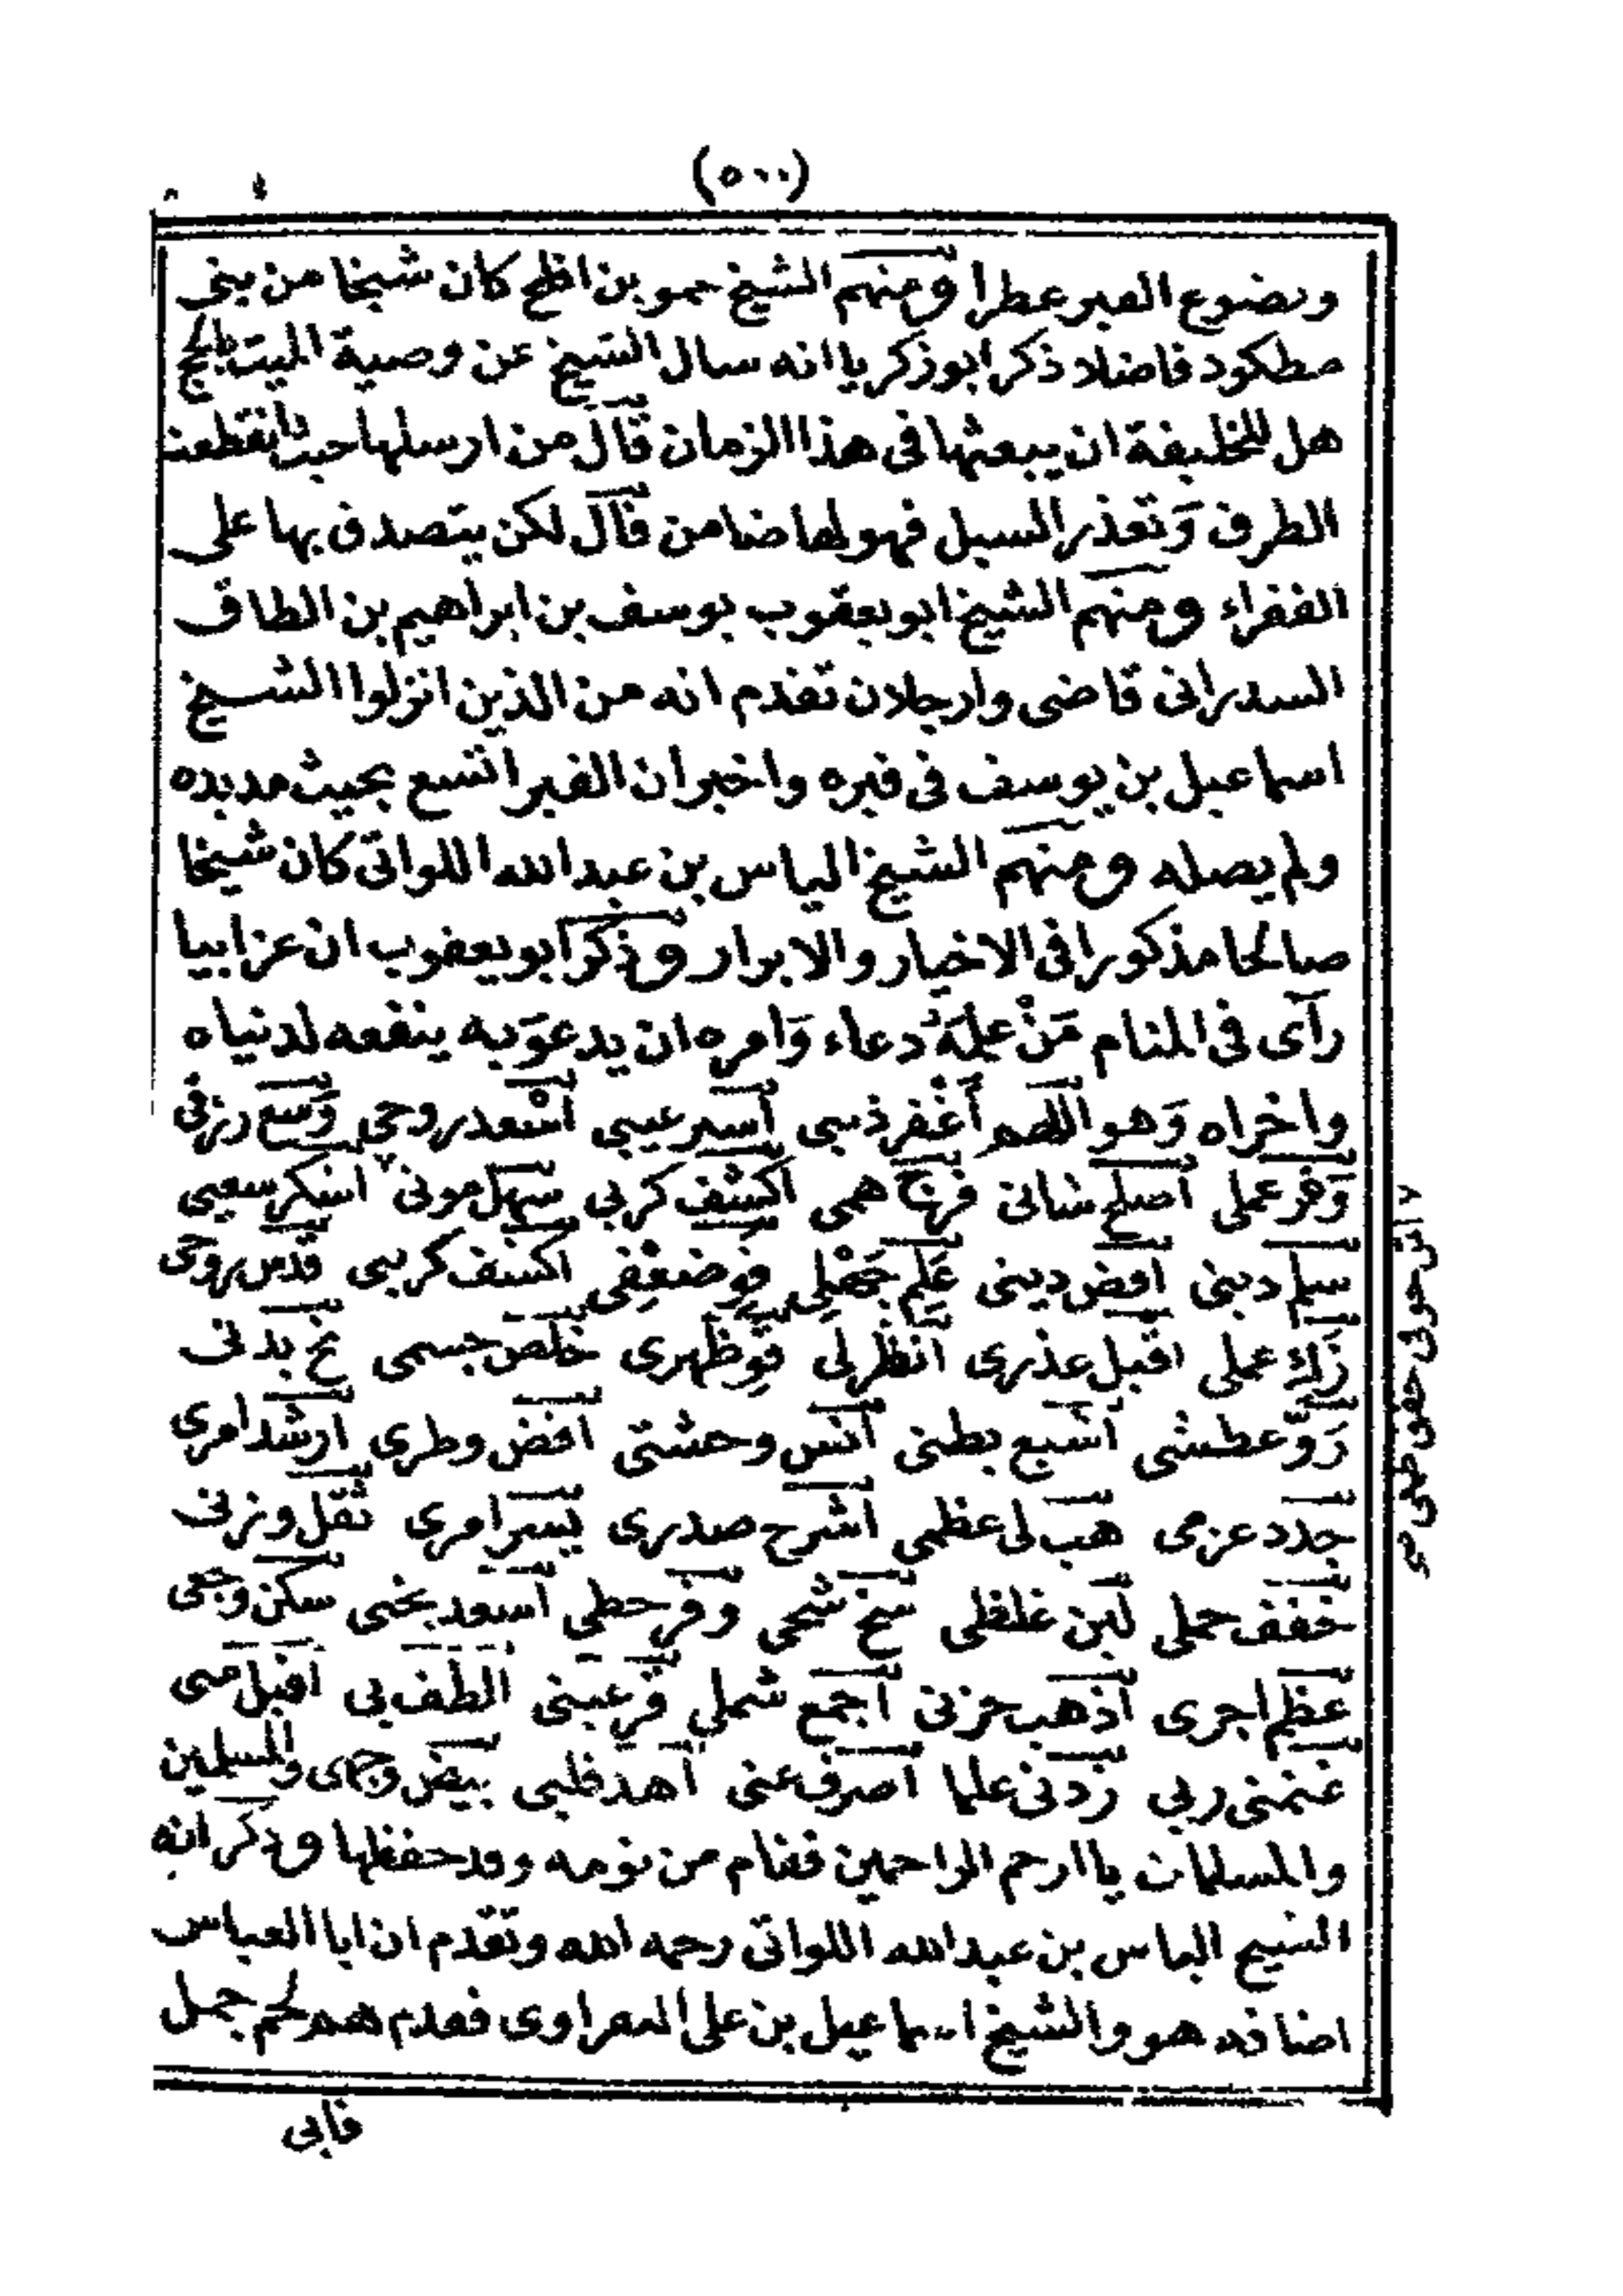 (٥٠٠)
وتضوع القبر عطرا ومنهم الشيخ حمو بن افلح كان شيخا من بنى
مطكود فاضلا ذكر ابو زكريا انه سال الشيخ عن وصية الميت بالحج
هل للخليفة ان يبعثها فى هذا الزمان قال من ارسلها حيث انقطعت
الطرق وتعذر السبل فهو لها ضامن قال لكن يتصدق بها على
الفقراء ومنهم الشيخ ابو يعقوب يوسف بن ابراهيم بن الطاق
السدراتى قاضى وارجلان تقدم انه من الذين انزلوا الشيخ
اسماعيل بن يوسف فى قبره واخبر ان القبر اتسع بحيث مد يده
ولم يصله ومنهم الشيخ الياس بن عبد الله اللواتى كان شيخا
صالحا مذكورا فى الاخيار والابرار وذكر ابو يعقوب ان عزابيا
رآى فى المنام مَنْ علمه دعاء وَامره ان يدعوَ به ينفعه لدنياه
واخراه وَهو اللهم أغْفر ذنبى استر عيبى اسْعد روحى وَسع رزقى
وَفر عملى اصلح شانى فرج همى اكشف كربى سهل موتى اشكر سعيى
سلم دينى اقض دينى عَلم جَهْلِى قوِ ضعْفِى اكشف كربى قدس روحى
زَك عملى اقبل عذرى انظر لى قوِ ظهرى خلص جسمى نج بدنى
رَوِّ عطشى اشبع بطنى آنس وحشتى اقض وطرى ارشد امرى
جدد عزمى هب لى عظمى اشرح صدرى يسر امرى ثقل وزنى
خفف حملى لين غلظى سخ شحى وفر حظى اسعد بختى سكن وجعى
عظم اجرى اذهب حزنى اجمع شملى قر عينى الطف بى اقبل منى
غنمنى ربى زدنى علما اصرف عنى اهد قلبى بيض وجهى والمسلمين
والمسلمات يا ارحم الراحمين فقام من نومه وقد حفظها وذكر انه
الشيخ الياس بن عبد الله اللواتى رحمه الله وتقدم ان ابا العباس
اضافه هو والشيخ اسماعيل بن على النفراوى فقدم لهم لحم جمل
فابى